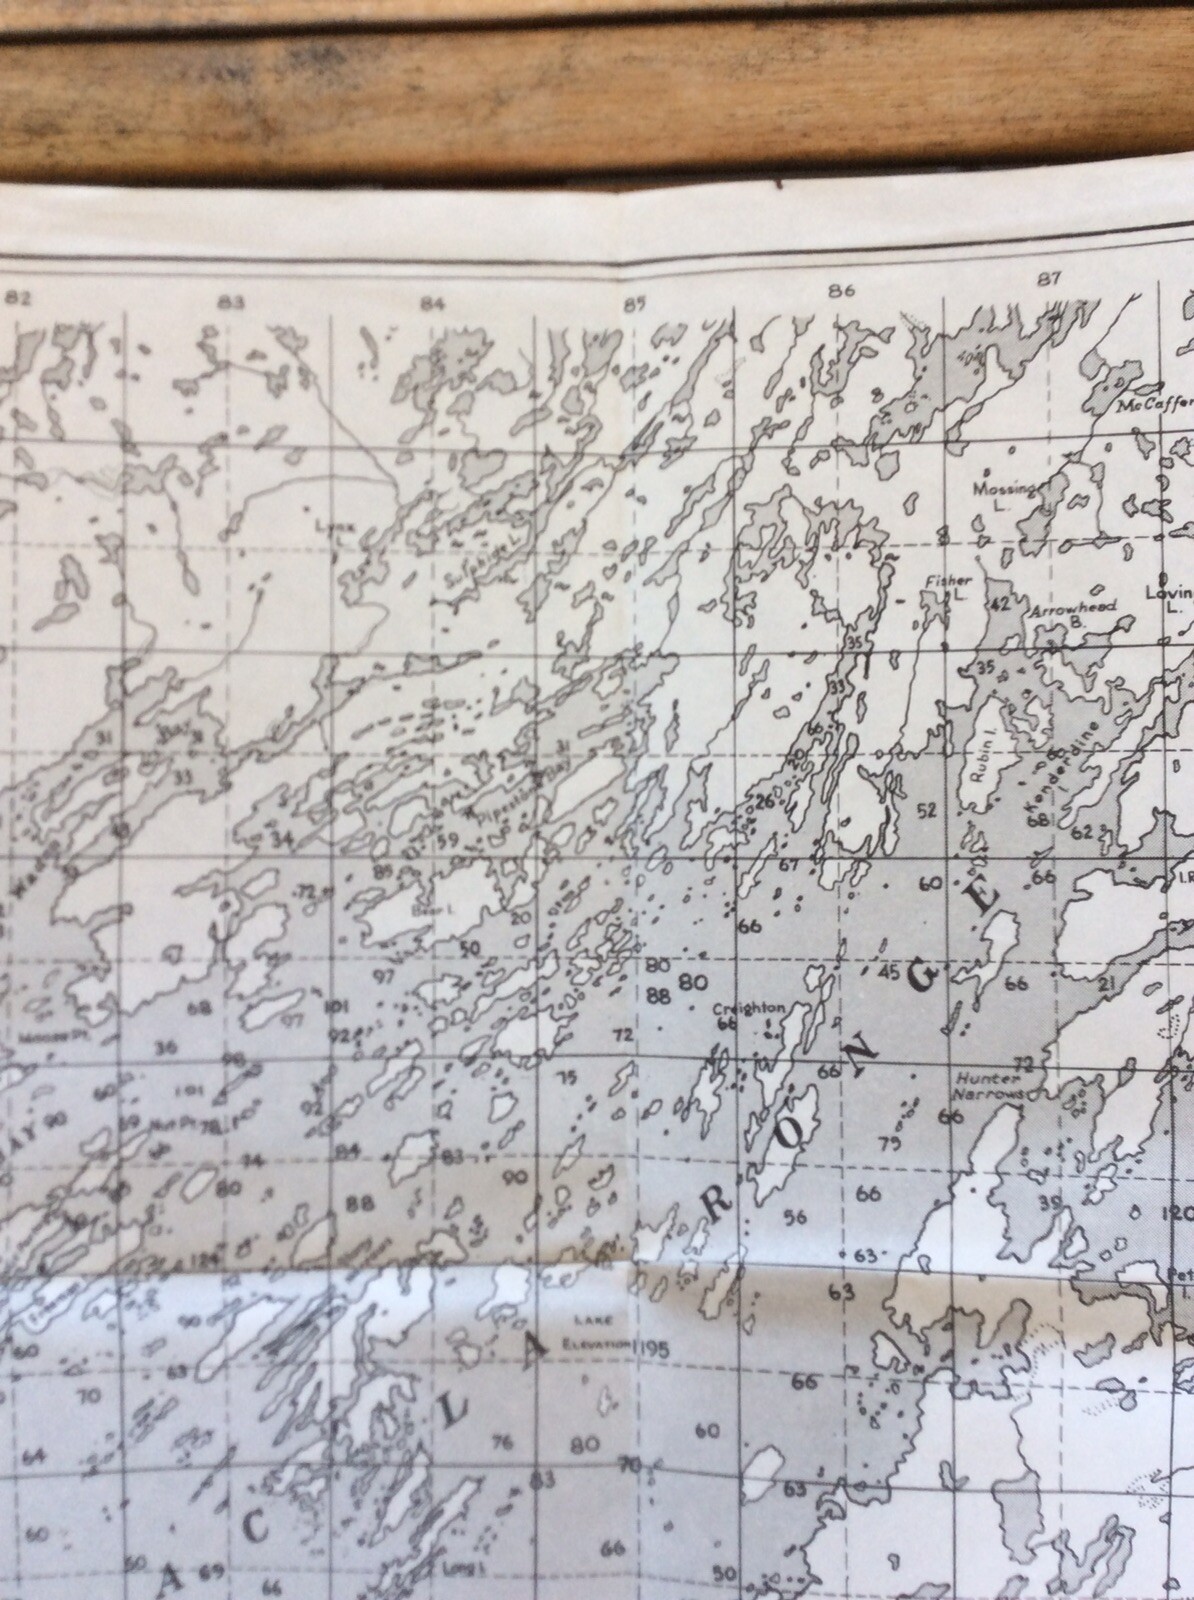 82 83 84 85 86 87
8
McCaffer
Mossing
L.
Lynx
Sulphide L.
Fisher
L.
42
Arrowhead
B.
Lavin
L.
35
35
33
31
Bay
31
33
66
20
Rubin I.
60
Kenderdine
I.
Pipestone Bay
31
26
52
68
62
34
59
85
67
72
60
66
I.R
Wadd
Bear I.
20
66
E
50
80
97
80
45
G
66
21
88
68
101
97
Creighton
66
92
72
Moose Pt.
36
98
75
66
N
72
Hunter
Narrows
60
101
92
66
BAY
90
69
Nut Pt.
78
O
79
74
84
83
90
80
R
66
39
88
56
120
124
63
63
Pet
I.
90
LAKE
ELEVATION 1195
A
60
63
66
70
L
60
76
80
64
70
83
63
C
60
Long I.
66
50
60
A
69
66